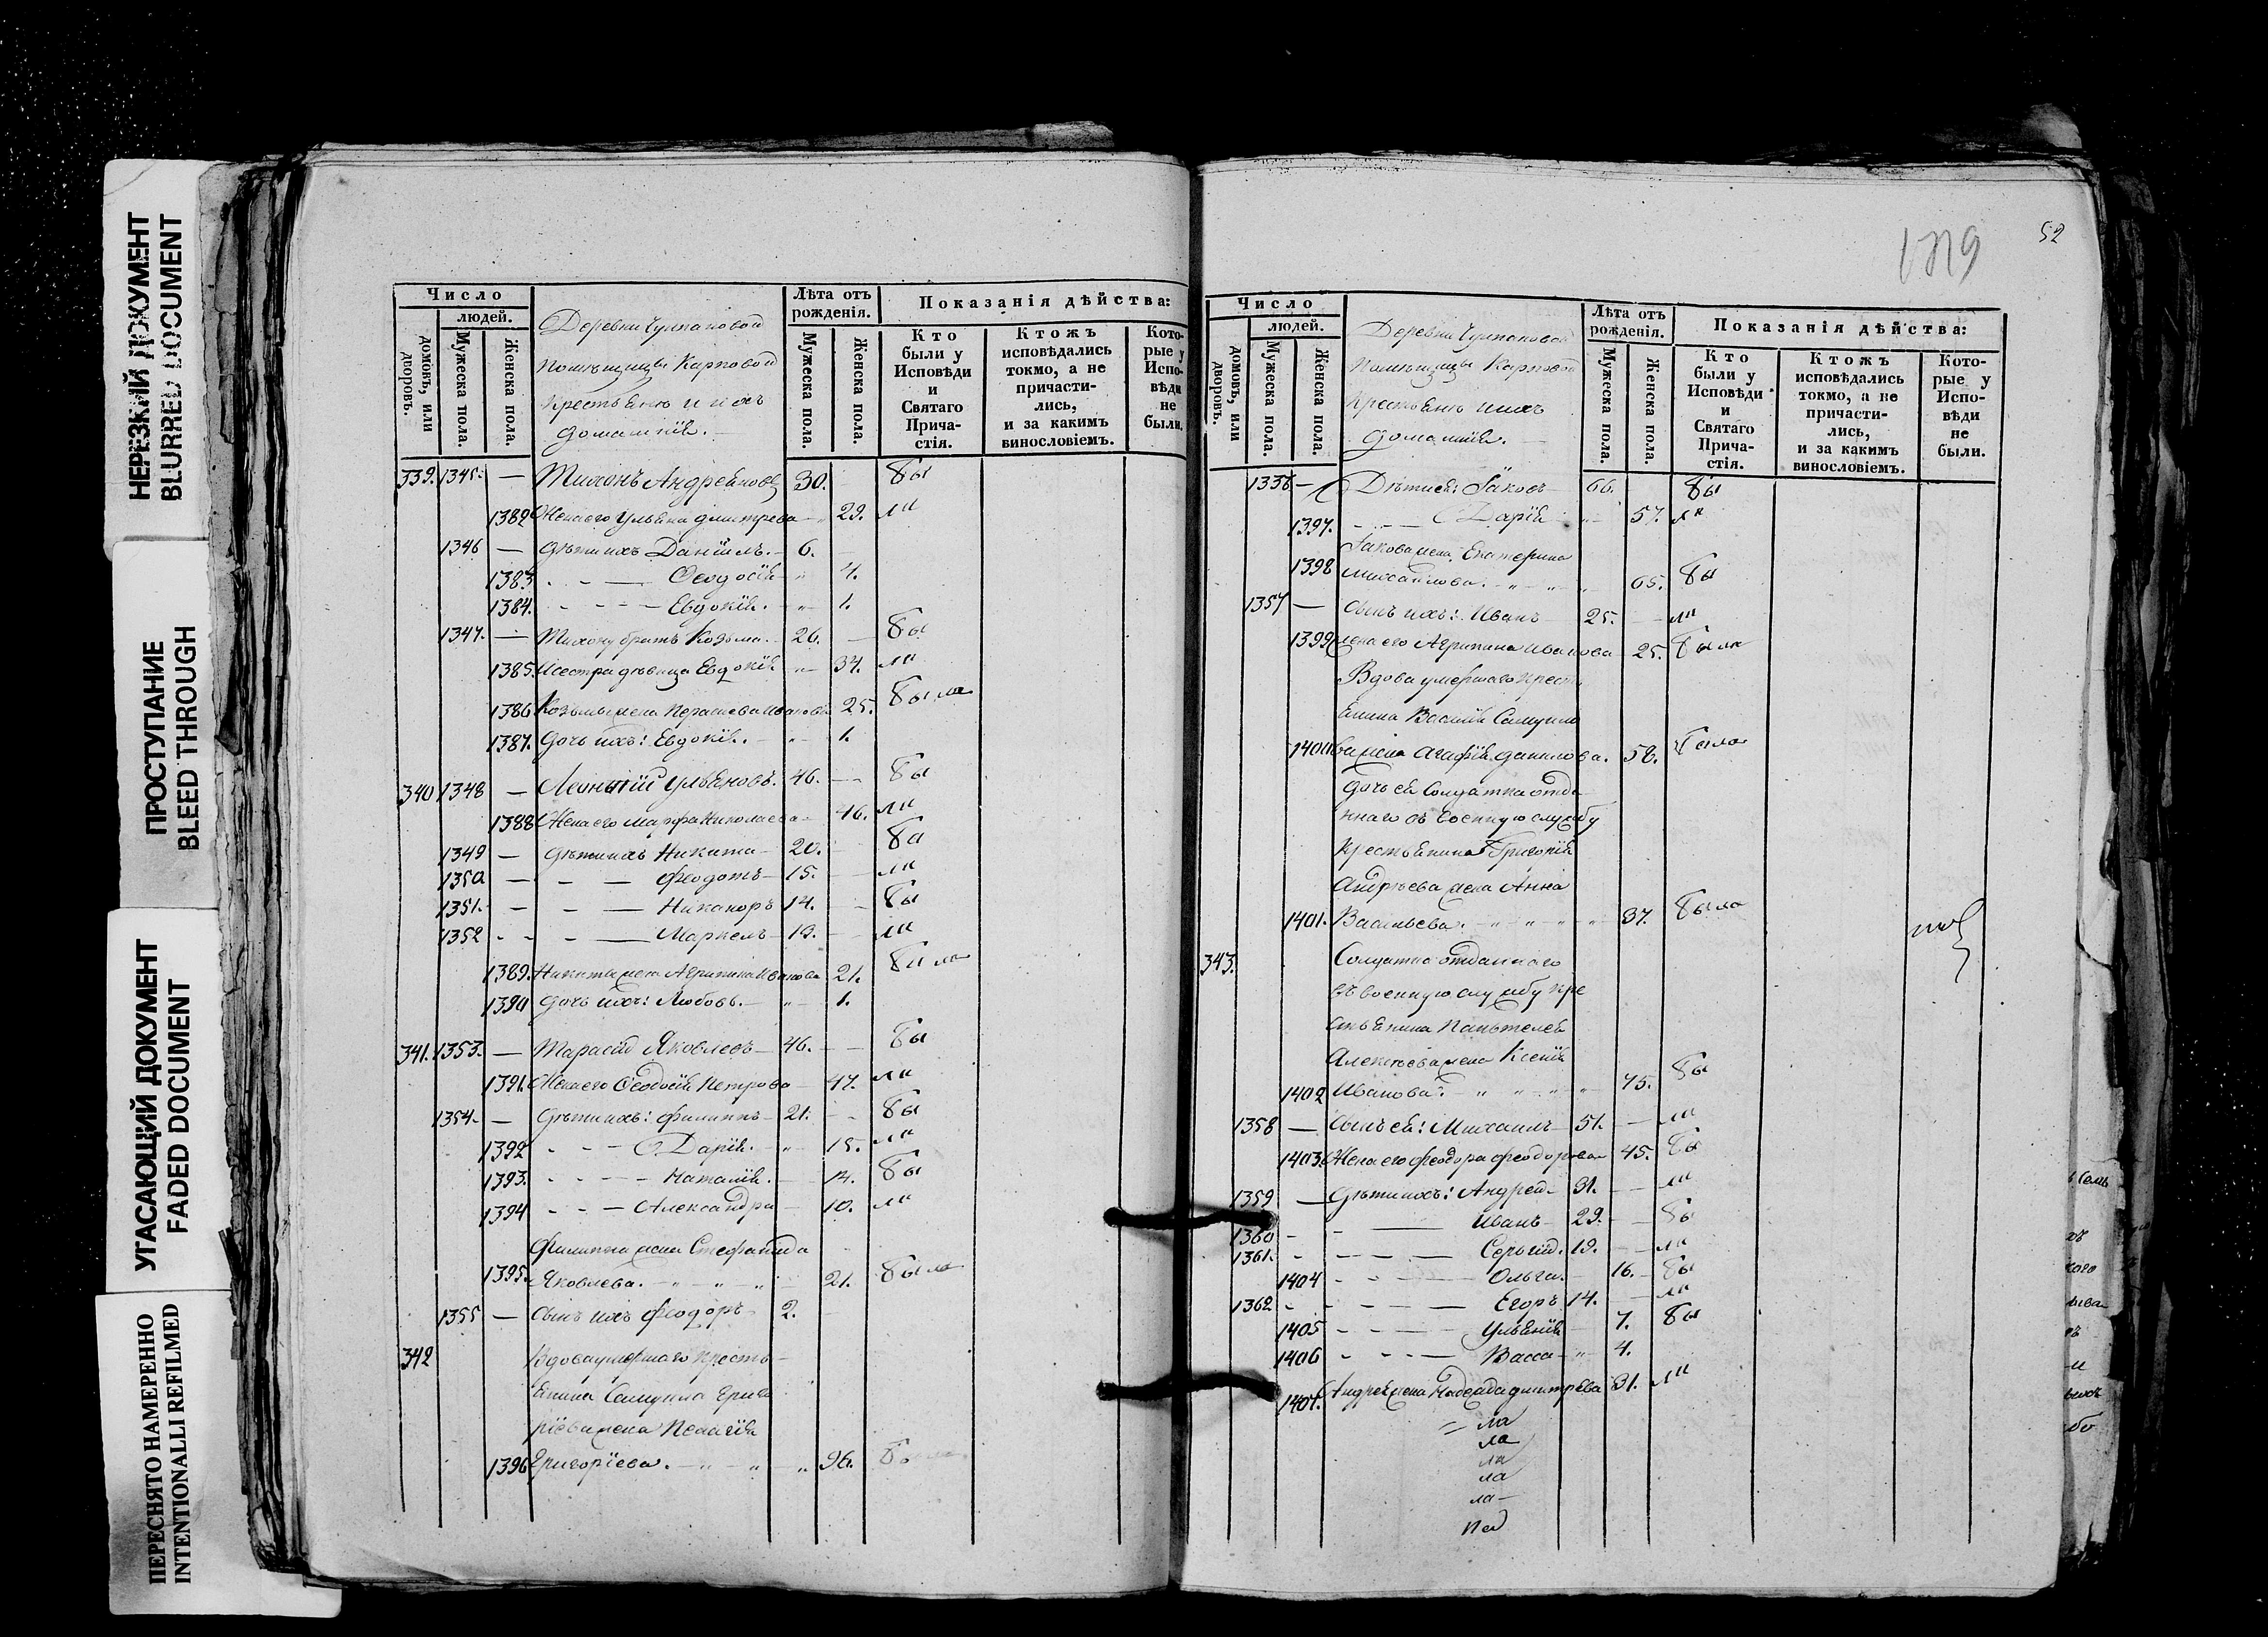 НЕРЕЗКИЙ ДОКУМЕНТ
BLURRED DOCUMENT
ПРОСТУПАНИЕ
BLEED THROUGH
УГАСАЮЩИЙ ДОКУМЕНТ
FADED DOCUMENT
ПЕРЕСНЯТО НАМЕРЕННО
INTENTIONALLI REFILMED
Число
людей.
домовъ, или дворовъ.
Мужеска пола.
Женска пола.
Деревни Чулпановой
помѣщицы Карповой
крестьяне и ихъ
домашніе.
Лѣта отъ рожденія.
Мужеска пола.
Женска пола.
Показанія дѣйства:
Кто были у Исповѣди и Святаго Прича-стія.
Ктожъ исповѣдались токмо, а не причасти-лись, и за какимъ винословіемъ.
Кото-рые у Испо-вѣди не были.
339. 1345. — Тихонъ Андреяновъ 30. бы
1382 Жена его Ульяна Дмитрева 29. ли
1346 — Дѣти ихъ Даніилъ. 6.
1383 Феодосія 4.
1384. Евдокія. 1.
1347. — Тихону братъ Козьма. 26. бы
1385. И сестра дѣвица Евдокія 34. ли
1386 Козьмы жена Параскева Иванова 25. была
1387. Дочь ихъ: Евдокія. 1.
340 1348 — Леонтій Ульяновъ. 46. бы
1388 Жена его Марфа Николаева 46. ли
1349 — Дѣти ихъ Никита 20. бы
1350 — Феодотъ 15. ли
1351. — Никаноръ 14. бы
1352 Маркелъ 13. ли
1389. Никиты жена Агрипина Иванова 21. была
1390 Дочь ихъ: Любовь. 1.
341. 1353. — Тарасій Яковлевъ 46. бы
1391. Жена его Феодосія Петрова 47. ли
1354. — Дѣти ихъ: Филиппъ 21. бы
1392 Дарія. 15. ли
1393. Наталія. 14. бы
1394 Александра 10. ли
Филиппа жена Стефанида
1395. Яковлева. 21. была
1355 — Сынъ ихъ Феодоръ 2.
342 Вдова умершаго кресть
янина Самуила Григо
ріева жена Пелагія
1396 Григоріева. 96. была
52
Число
людей.
домовъ, или дворовъ.
Мужеска пола.
Женска пола.
Деревни Чулпановой
помѣщицы Карповой
крестьяне и ихъ
домашніе.
Лѣта отъ рожденія.
Мужеска пола.
Женска пола.
Показанія дѣйства:
Кто были у Исповѣди и Святаго Прича-стія.
Ктожъ исповѣдались токмо, а не причасти-лись, и за какимъ винословіемъ.
Кото-рые у Испо-вѣди не были.
— Дѣти ей: Іаковъ 66. бы
1397. Дарія 57. ли
Іакова жена Екатерина
1398 Михайлова. 65. бы
1357 — Сынъ ихъ: Иванъ 25. ли
1399 Жена его Агрипина Иванова 25. была
Вдова умершаго крест
янина Василія Самуило
1400 ва жена Агафія Данилова. 58. была
Дочь ей Солдатка отда
ннаго въ военную службу
крестьянина Григорія
Андрѣева жена Анна
1401. Васильева. 37. была
343. Солдатка отданнаго
въ военную службу кре
стьянина Пантелея
Алексѣева жена Ксенія
1402 Иванова. 75. бы
1358 — Сынъ ей: Михаилъ 51. ли
1403. Жена его Феодора Феодорова 45. бы
1359 — Дѣти ихъ: Андрей 31. ли
1360 Иванъ 29. бы
1361. Сергій. 19. ли
1404 Ольга. 16. бы
1362 Егоръ 14. ли
1405 Ульянія 7. бы
1406 Васса 4.
1407. Андрея жена Надежда Дмитрева 31. ли
ла
ла
ла
ла
ла